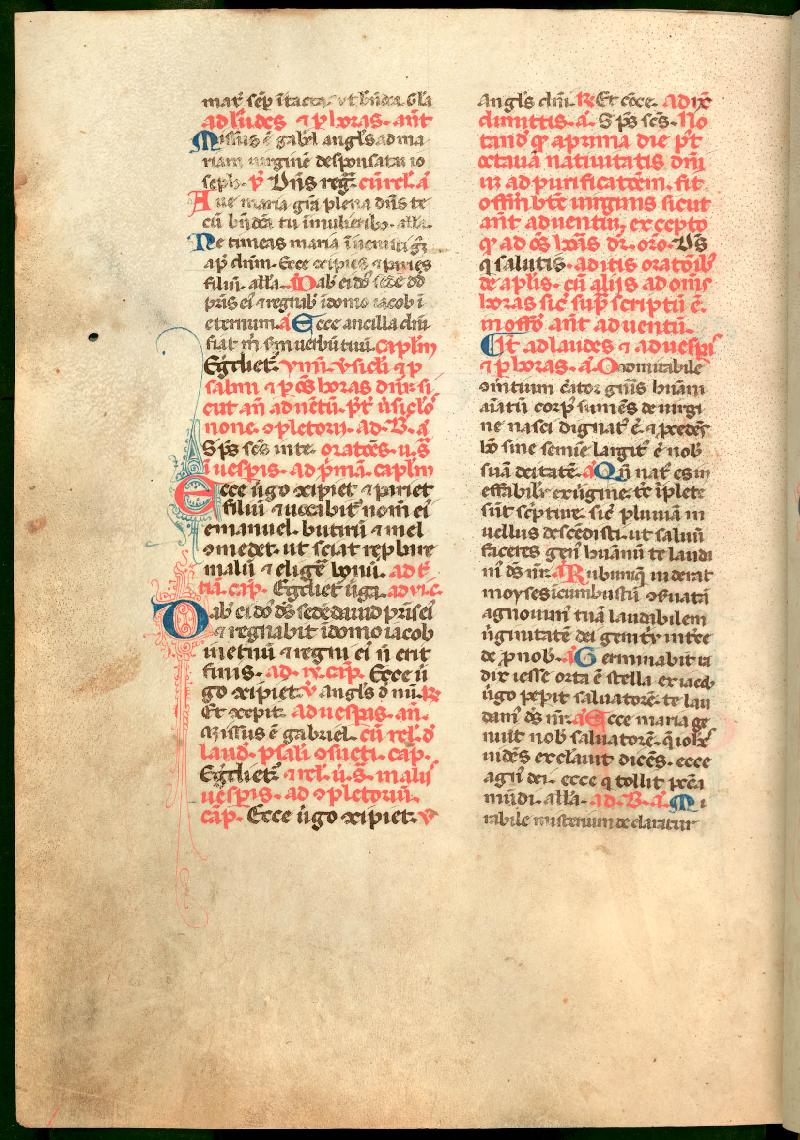 mar̄ sēp ītacta. ut
ad lūdes ⁊ ꝑ horas. ant̄
Missus ē gab̄l angl̄s ad ma
riam uirginē desponsatā io
seph. ꝟ Dn̄s reḡ. cū rel. a
Aue maria grā plena dn̄s te
cū bn̄dcā tu ī mulieribꝰ. all̄a.
Ne timeas maria īuenisti
ap̄ dnm̄. Ecce ɔcipies ⁊ paries
filiū. all̄a. Dab̄ ei dn̄s sedē dd
pr̄is ei ⁊ regnab̄ ī domo iacob ī
eternum. a Ecce ancilla dn̄i
fiat m̄ sm̄ uerbū tuū. caplm̄
Egdiet᷑. ymn̄. ꝟsicl̄i ⁊ p̄
salmi ⁊ p̄ ōs horas dn̄r si
cut an̄ aduētū. pt̄ ūsiclō
none. ɔpletorij. ad. B. a
Sp̄s scs̄ in te. oratōes. u. s̄
ī uespis. ad pmā. caplm̄
Ecce ūgo ɔcipiet ⁊ pariet
filiū ⁊ uocabit᷑ nom̄ ei
emanuel. butirū ⁊ mel
ɔmedet. ut sciat rep̄bare
malū ⁊ eliḡe bonū. ad t̄
tiā. cap̄. Egdiet ūga. ad vi. c.
Dab̄ ei dn̄s ds̄ sedē dauid pr̄is ei
⁊ regnabit ī domo iacob
ī et̄nū ⁊ regni ei n̄ erit
finis. ad. ix. cap̄. Ecce ū
go ɔcipiet. ꝟ angl̄s d̄ nū. ℞
Et ɔcepit. ad uespis. an̄.
Missus ē gabriel. cū rel. d̄
laud. psal̄i ɔsueti. cap̄.
Egdiet᷑. ⁊ rel. u. s. malijs
uespis. ad ɔpletoriū.
cap̄. Ecce ūgo ɔcipiet. ꝟ
angl̄s dn̄i. ℞ Et ɔcę. ad ix
dimittis. a. Sp̄s scs̄. No
tand ꝙ a prima die p̄t
octauā natiuitatis dn̄i
usꝫ ad purificatōem. fit
offm̄ btē uirginis sicut
an̄t aduentū, excepto
ꝙ ad ōs horas dr̄. orō. Ds̄
q salutis. ad itis oratōibꝰ
de aplis. cū alijs ad oms̄
horas sic̄ sup̄ scriptū ē.
in offō an̄t aduentū.
It ad laudes ⁊ ad uesps̄
⁊ ꝑ horas. a. O admirabile
ɔmtium c̄ator gn̄is humani
aīatū corpꝰ sumēs de uirgi
ne nasci dignatꝰ ē. ⁊ ꝓcedēs
hō sine semīe largitꝰ ē nob̄
suā deitatē. a Qn̄ natꝰ es in
effabilit̄ ex ūgine. tc̄ īplete
sūt sc̄pture. sic̄ pluuia in
uellus descēdisti. ut saluū
faceres genꝰ humanū te laudā
mꝰ ds̄ nr̄. a Rubum quē uiderat
moyses īcumbustū ɔs̄uatā
agnouimꝰ tuā laudibilem
ūginitatē dei genit̄x int̄ce
de ꝓ nob̄. a Germinabit ra
dix iesse orta ē stella ex iacob
ūgo pep̄it saluatorē. te lau
damꝰ ds̄ nr̄. a Ecce maria ge
nuit nob̄ saluatorē. quē iohēs
uidēs exclauit dicēs. ecce
agnꝰ dei. ecce q tollit pcc̄a
mūdi. all̄a. ad. B. a. Mi
rabile misterium declaratur